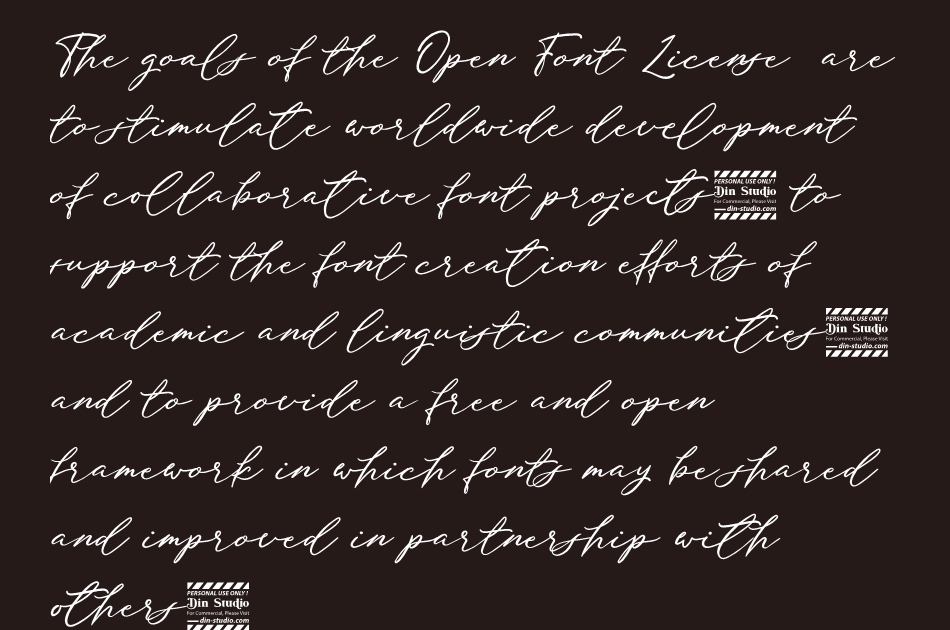 The goals of the Open Font License are
to stimulate worldwide development
of collaborative font projects PERSONAL USE ONLY! Din Studio For Commercial, Please Visit din-studio.com to
support the font creation efforts of
academic and linguistic communities PERSONAL USE ONLY! Din Studio For Commercial, Please Visit din-studio.com
and to provide a free and open
framework in which fonts may be shared
and improved in partnership with
others PERSONAL USE ONLY! Din Studio For Commercial, Please Visit din-studio.com